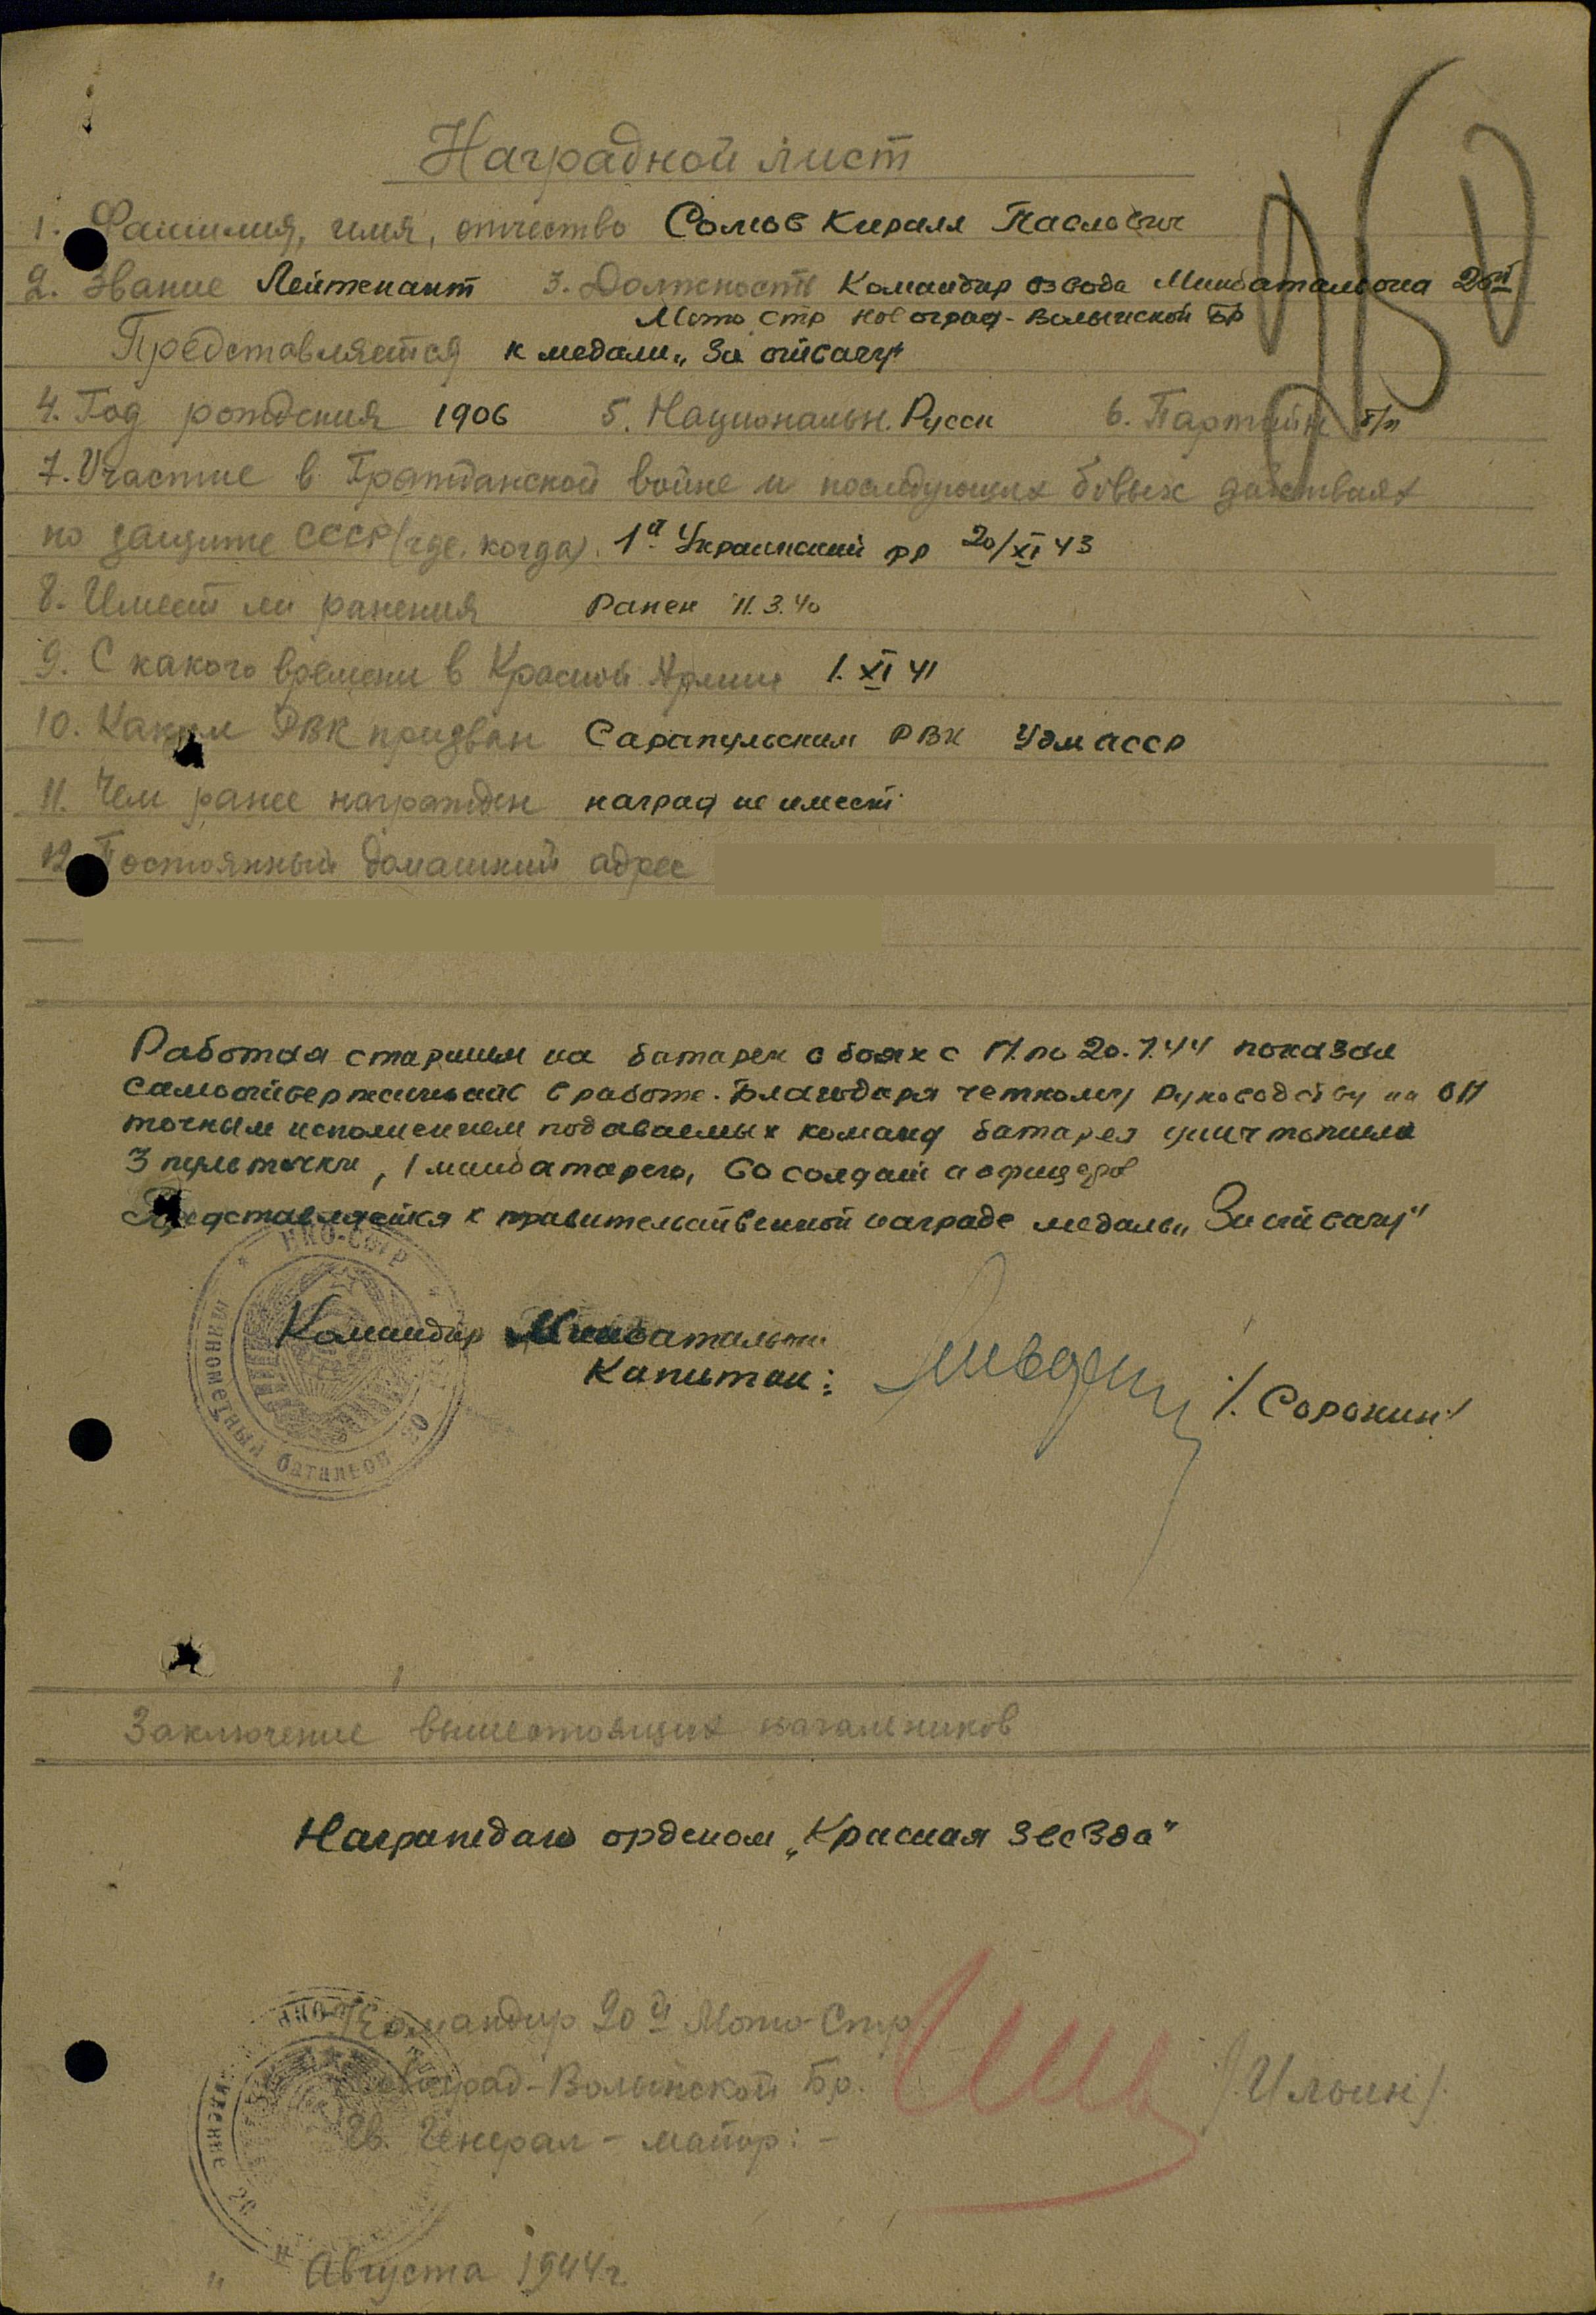 Наградной лист
1. Фамилия, имя, отчество Сомов Кирилл Павлович
2. Звание Лейтенант 3. Должность Командир взвода Минбатальона 20й
Мото Стр Новоград-Волынской Бр
Представляется к медали „За отвагу"
4. Год рождения 1906 5. Национальн. Русск 6. Партийн б/п
7. Участие в Гражданской войне и последующих боевых действиях
по защите СССР (где, когда). 1й Украинский фр 20/XI 43
8. Имеет ли ранения Ранен 11.3.40
9. С какого времени в Красной Армии 1. XI 41
10. Каким РВК призван Сарапульским РВК УдмАССР
11. Чем ранее награжден наград не имеет
12 Постоянный домашний адрес
Работая старшим на батареи в боях с 17 по 20.7.44 показал
самоотверженность в работе. Благодаря четкому руководству на ОП
точным исполнением подаваемых команд батарея уничтожила
3 пульточки, 1 минбатарею, 60 солдат и офицеров
Представляется к правительственной награде медаль „За отвагу"
НКО-СССР
Минометный батальон 20
Командир Минбатальона
Капитан: /. Сорокин/
Заключение вышестоящих начальников
Награждаю орденом „Красная звезда"
Командир 20й Мото-Стр
Новоград-Волынской Бр.
Гв. Генерал-майор: - /. Ильин/.
" " Августа 1944 г.